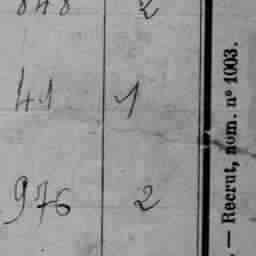 848 2
41 1
976 2
. — Recrut, nom. nº 1003.